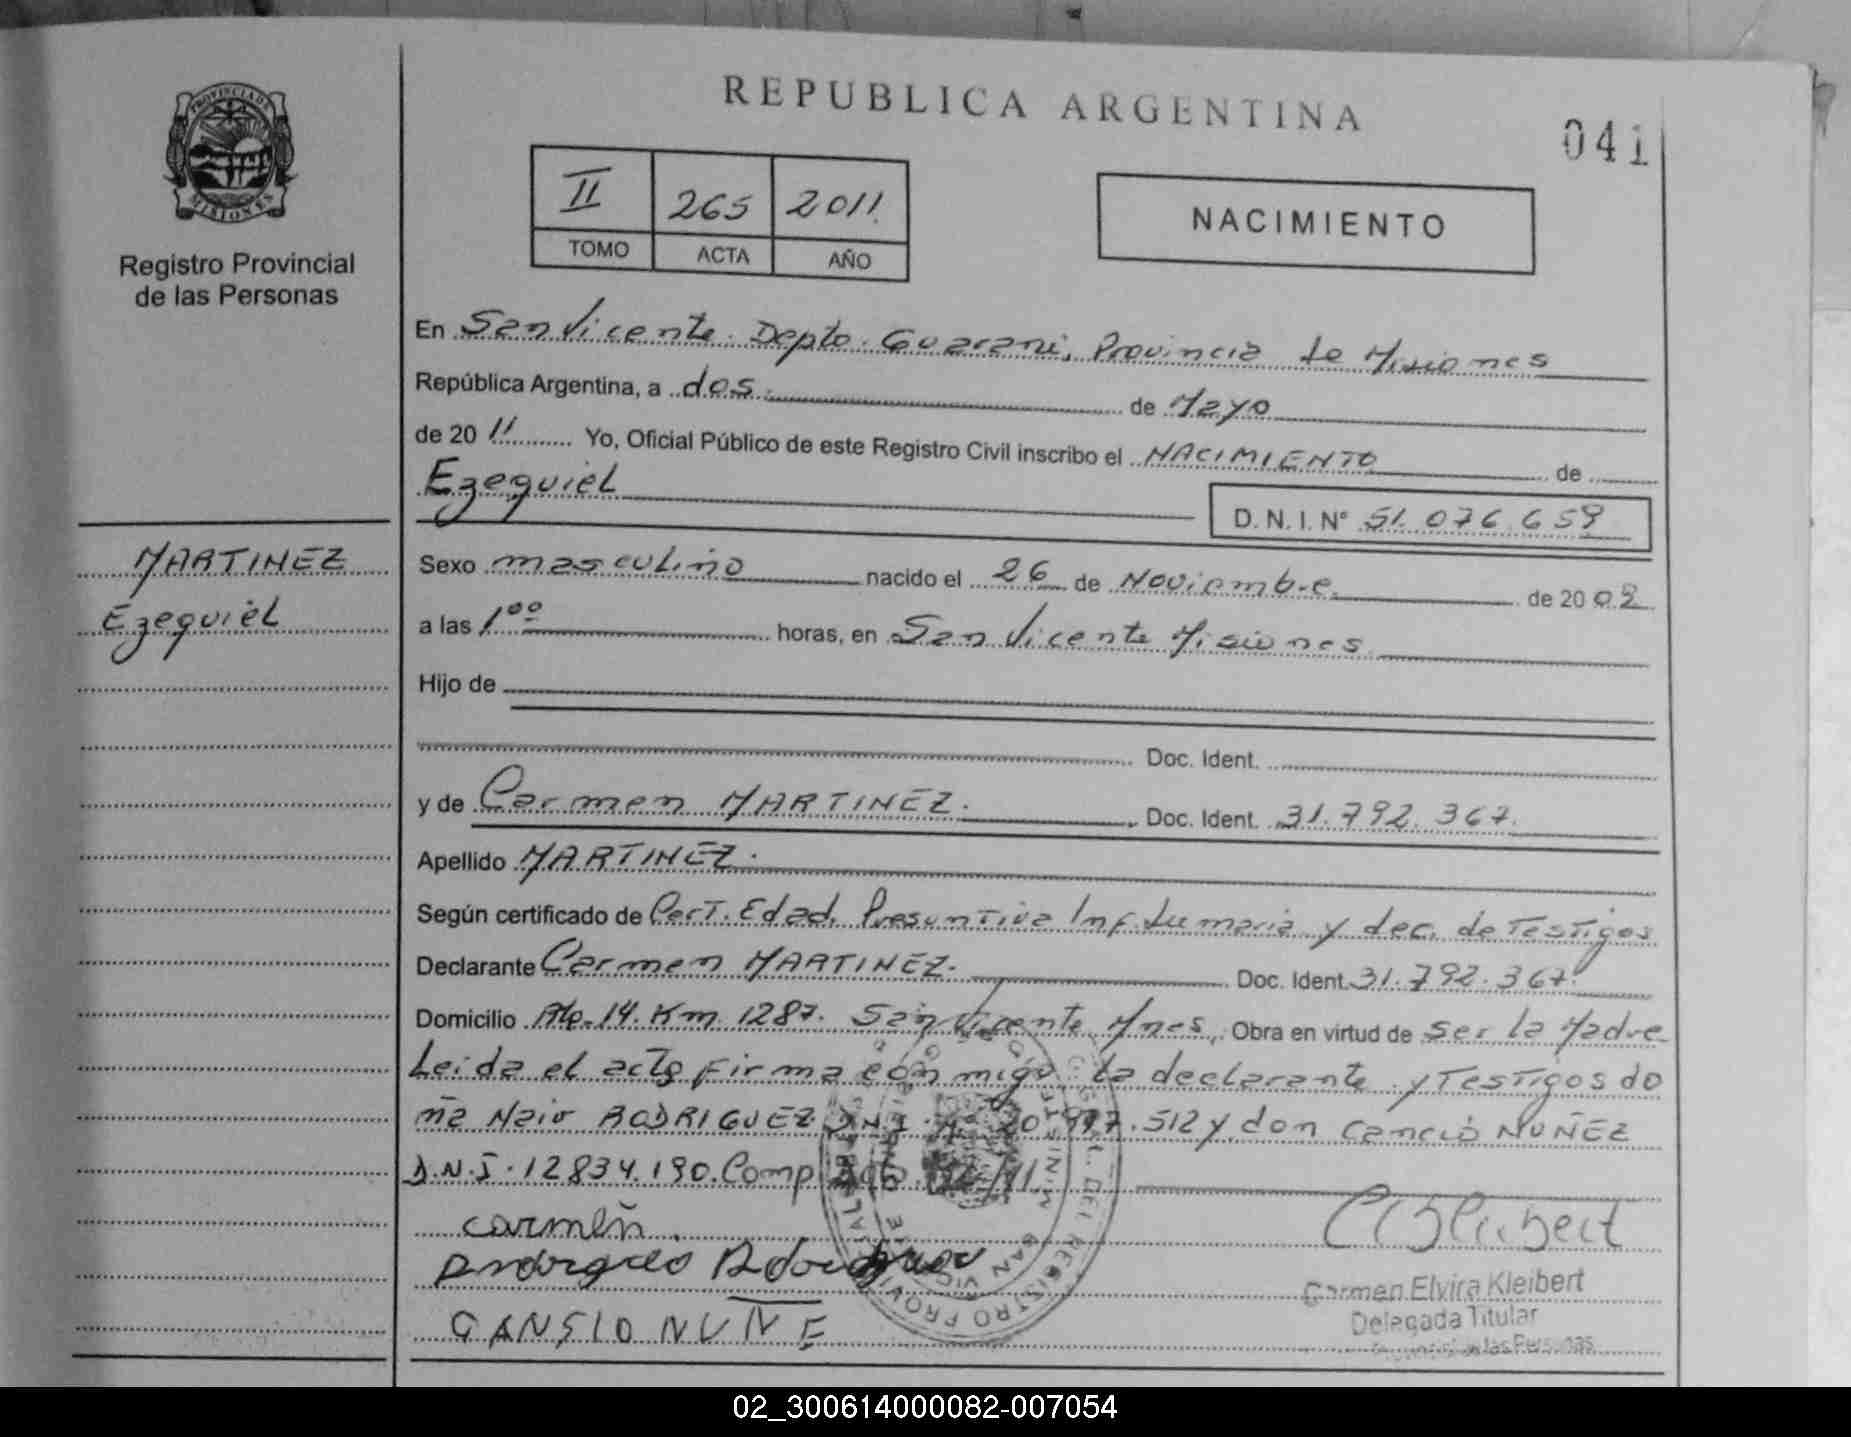 REPUBLICA ARGENTINA
041
PROVINCIA DE
MISIONES
Registro Provincial
de las Personas
II 265 2011
TOMO ACTA AÑO
NACIMIENTO
En San Vicente. Depto. Guarani, Provincia de Misiones
República Argentina, a dos de Mayo
de 20 11 Yo, Oficial Público de este Registro Civil inscribo el NACIMIENTO de
Ezequiel
D. N. I. Nº 51.076.659
MARTINEZ
Ezequiel
Sexo masculino nacido el 26 de Noviembre de 20
a las 1 00 horas, en San Vicente Misiones
Hijo de
Doc. Ident.
y de Carmen MARTINEZ. Doc. Ident. 31.792.367.
Apellido MARTINEZ.
Según certificado de Cert. Edad. Presuntiva Inf. Sumaria y dec. de Testigos
Declarante Carmen MARTINEZ. Doc. Ident. 31.792.367.
Domicilio 14. Km 1287. San Vicente Mnes, Obra en virtud de ser la Madre
Leida el acta firma conmigo la declarante y Testigos do
ña RODRIGUEZ D.N.I. 512 y don Cancio NUÑEZ
D.N.I. 12834.190. Comp /11.
carmen
CANSIO NUÑE
REGISTRO PROVINCIAL
SAN VIC
Carmen Elvira Kleibert
Delegada Titular
las Personas
02_300614000082-007054